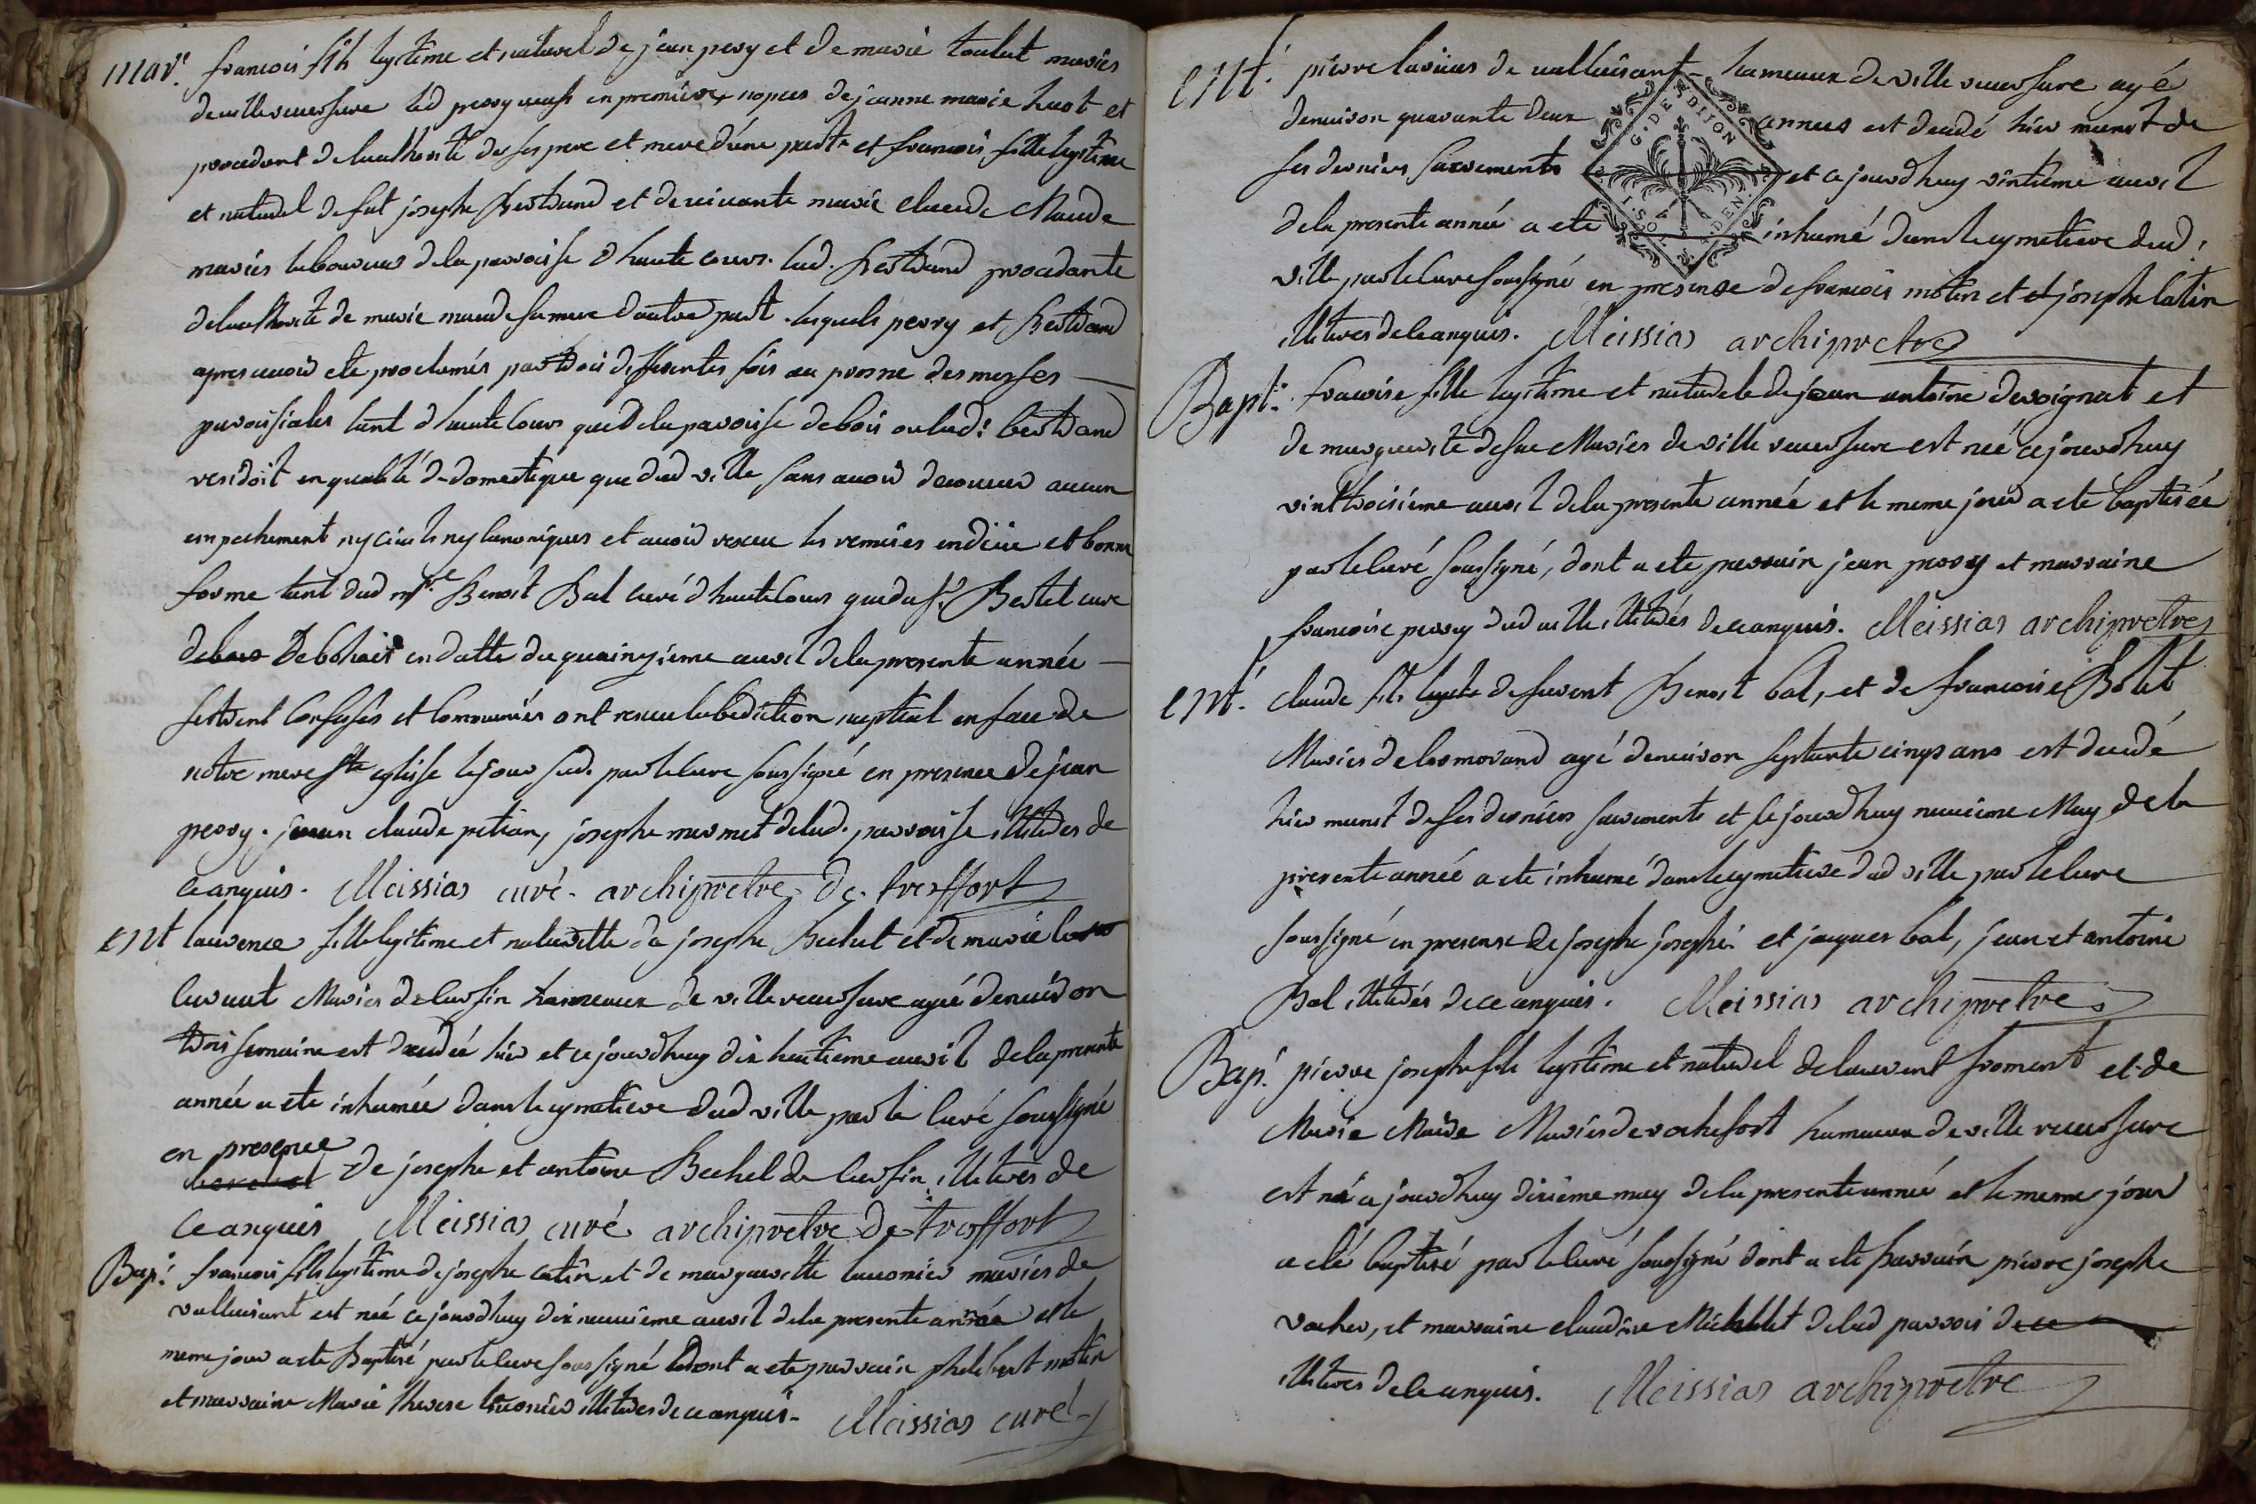 mar. francois fils legitime et naturel de jean peory et de marie toulut mariés
de ville reversure led peory veuf en premiere nopces de jeanne marie huot et
procedant de lauthorité de ses pere et mere d'une part et francois fille legitime
et naturel de fut joseph Bertrand et de vivante marie claude Maude
mariés laboureurs de la parroisse d'hautecour. lad. Bertrand procedante
de lauthorité de marie maude sa mere d'autre part. lesquels peory et Bertrand
apres avoir eté proclamés par trois differentes fois au prosne des messes
paroissiales tant d'hautecour que de la paroisse de bois ou lad: bertrand
residoit en qualité de domestique que dud ville sans avoir decouvert aucun
empechement ny civils ny canoniques et avoir receu les remises en due et bonne
forme tant dud mre Benoit Bal curé d'hautecour que du sr Bertet curé
de Bohais en datte du quainzieme avril de la presente année
s'estvent confessés et communiés ont receu la bediction nuptial en face de
notre mere ste eglise le jour sud. par le curé soussigné en presence de jean
peory. jean claude petian, joseph marmet de lad. parroisse illiterés de
ce anquis. Meissias curé. archipretre de treffort
ent laurence fille legitime et naturelle de joseph Bechet et de marie
luvaut Mariés de cursin hameaux de ville reversure agée d'environ
trois semaine est decedée hier et ce jourdhuy dix huitieme avril de la presente
année a eté inhumée dans le cymetiere dud ville par le curé soussigné
en presence
de joseph et antoine Bechel de cursin illiterés de
ce anquis Meissias curé archiprétre de treffort
Bap: francois fils legitime de joseph catin et de marguerette luconier mariés de
valluisant est né ce jourdhuy dix neuvieme avril de la presente année et le
meme jour a eté Baptisé par le curé soussigné dont a eté parrain philibert motin
et marraine Marie therese luconier illiterés de ce anquis. Meissias curé
ent. pierre luvias de valluisant hameaux de ville reversure agé
denviron quarante deux années est decedé hier munit de
ses derniers sacrements et ce jourdhuy vintieme avril
de la presente année a eté inhumé dans le cymetiere dud.
ville par le curé soussigné en presense de francois motin et et joseph latin
illiteres de ce anquis. Meissias archipretre
G. DE DIJON
Bapt: francoise fille legitime et naturele de jean antoine derognat et
de marguerite desue Mariés de ville reversure est née ce jourdhuy
vint troisieme avril de la presente année et le meme jour a eté baptisée
par le curé soussigné, dont a eté parrain jean peory et marraine
francoise peory dud ville illiterés de ce anquis. Meissias archipretre
ent. claude fils de suvent Benoit bal, et de francoise Bolet
Mariés de cosmorand agé denviron septante cinq ans est decedé
hier munit de ses derniers sacrements et ce jourdhuy neuvieme May de la
presente année a eté inhumé dans le cymetiere dud ville par le curé
soussigné en presense de joseph joseph et jacques bal, jean et antoine
Bal illiterés de ce anquis. Meissias archipretre
Bap. pierre joseph fils legitime et naturel de laurent froment et de
Marie Maide Mariés de rochefort hameaux de ville reversure
est né ce jourdhuy dixieme may de la presente année et le meme jour
a eté baptisé par le curé soussigné dont a eté parrain pierre joseph
vacher, et marraine claudine Michelet de lad parrois
illiteres de ce anquis. Meissias archipretre